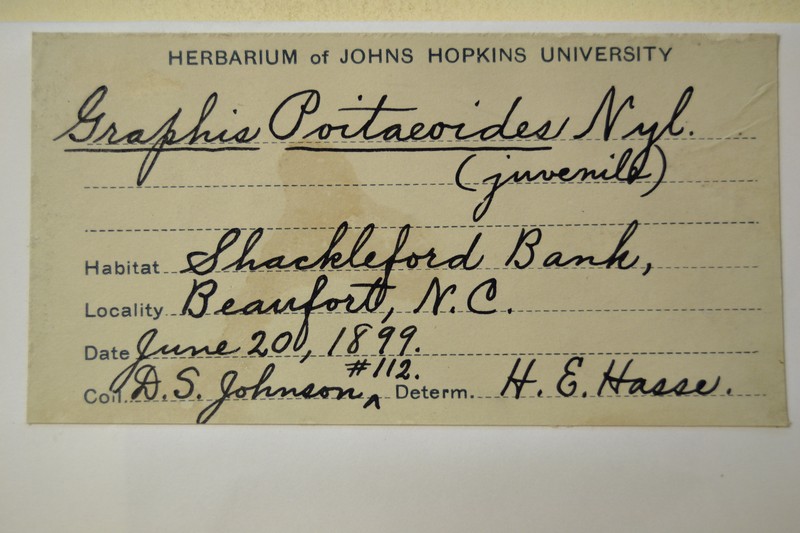 HERBARIUM of JOHNS HOPKINS UNIVERSITY
Graphis Poitaeoides Nyl.
(juvenile)
Habitat Shackleford Bank,
Locality Beaufort, N.C.
Date June 20, 1899.
#112.
Coll. D.S. Johnson ^ Determ. H. E. Hasse.